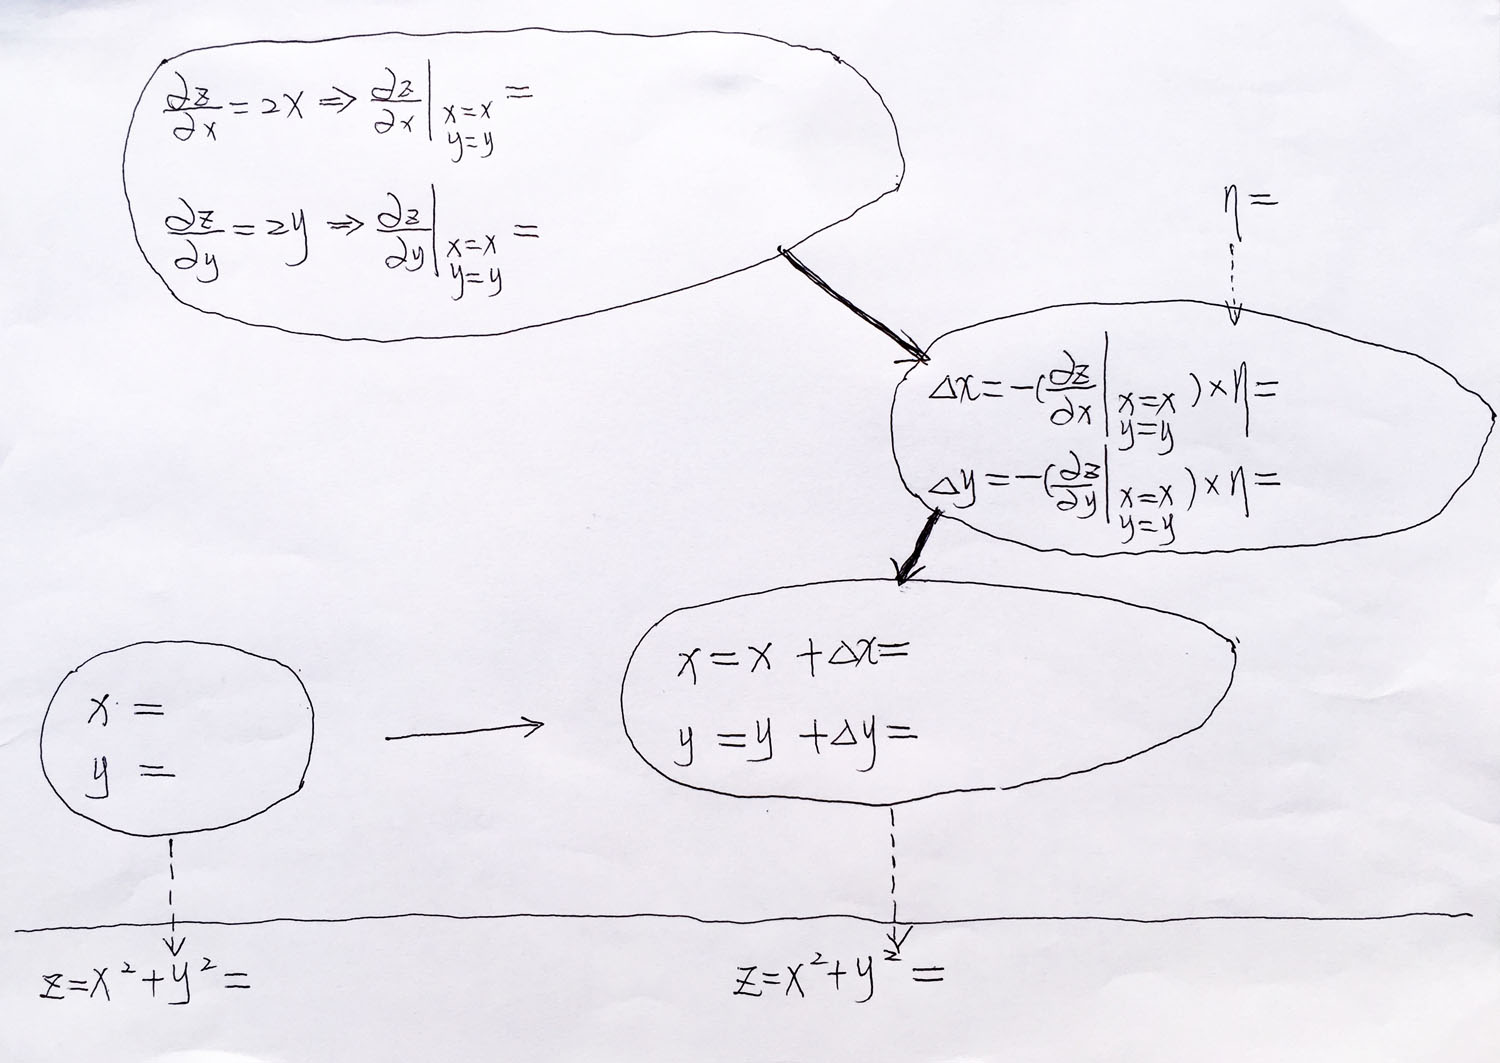 ∂z/∂x = 2x ⇒ ∂z/∂x | x=x y=y =
∂z/∂y = 2y ⇒ ∂z/∂y | x=x y=y =
η =
Δx = -(∂z/∂x | x=x y=y ) × η =
Δy = -(∂z/∂y | x=x y=y ) × η =
x = x + Δx =
y = y + Δy =
x =
y =
z = x² + y² =
z = x² + y² =